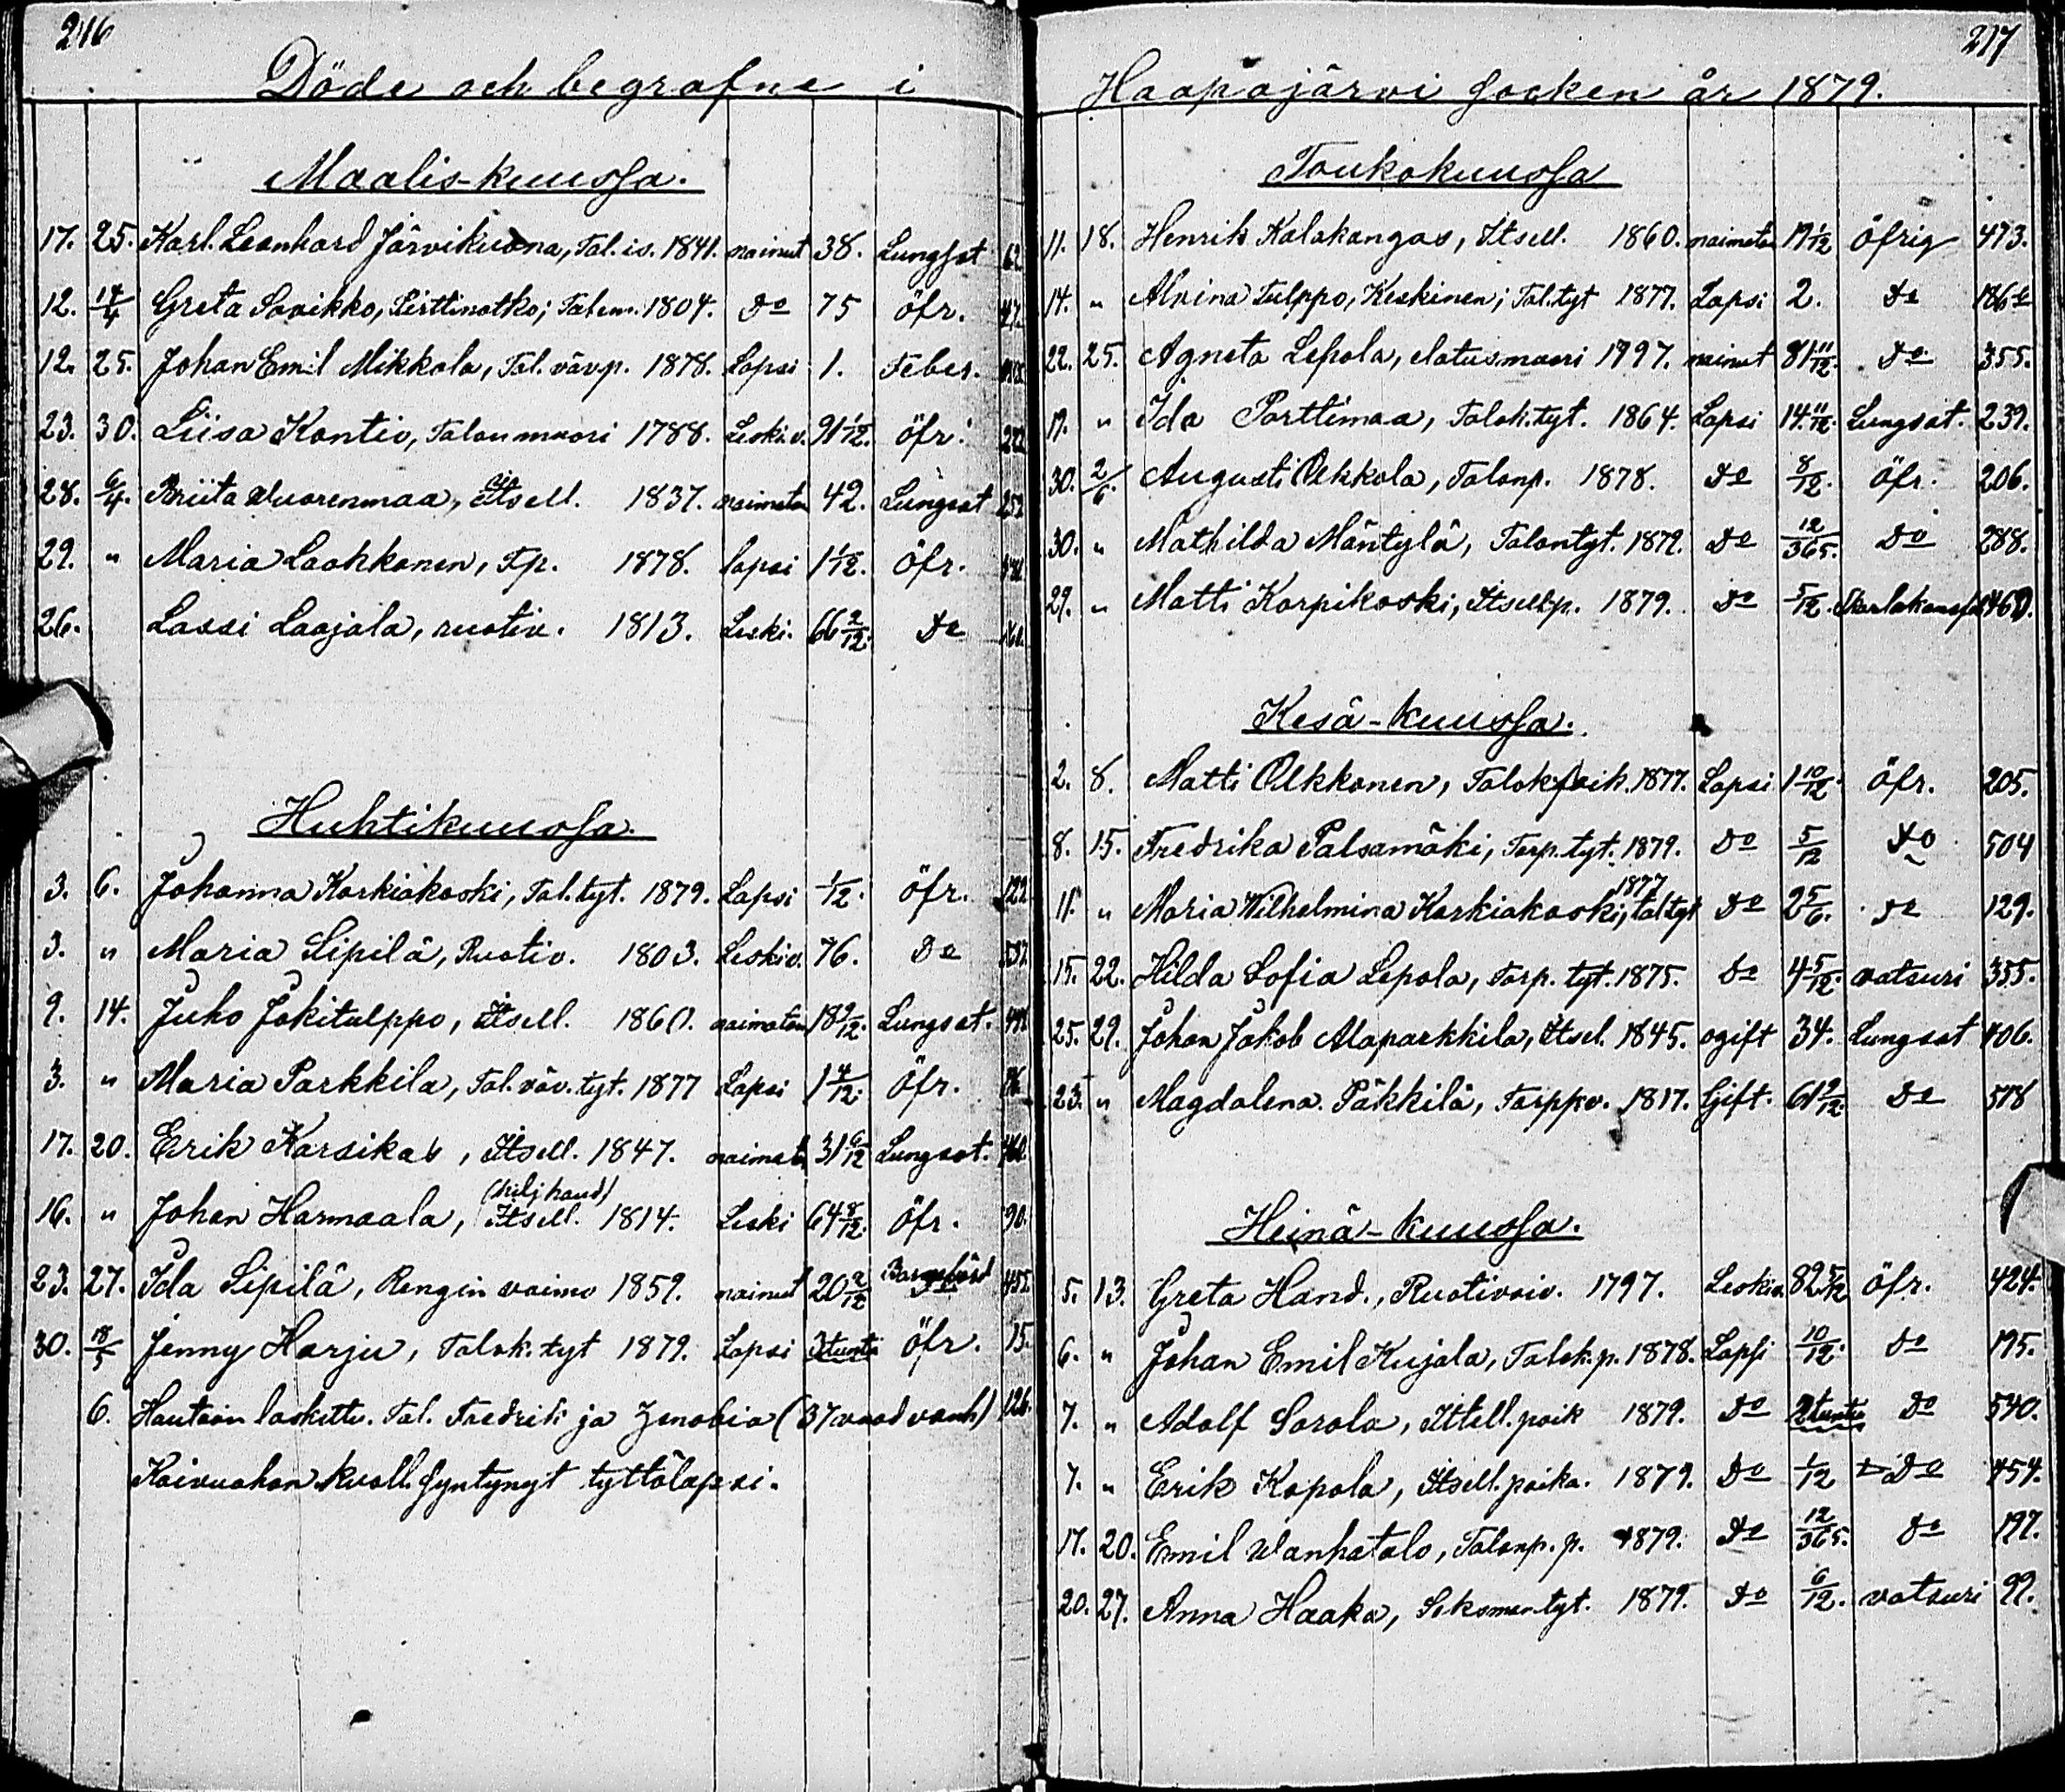 216
Döde och begrafne i
Maalis-kuussa.
17. 25. Karl Leonhard Järvikuona, Tal. is. 1841. nainut 38. Lungsot 62
12. 14/4 Greta Savikko, Talem. 1804. Do 75 öfr. 47.
12. 25. Johan Emil Mikkola, Tal. vävp. 1878. Lapsi 1. Feber.
23. 30. Liisa Kontio, Talon muori 1788. Leskiv. 91 1/12. öfr. 272
28. 6/4. Briita Wuorenmaa, Itsell. 1837. naimaton 42. Lungsot 252
29. " Maria Laakkonen, Tp. 1878. lapsi 1 1/12. Öfr.
26. Lassi Laajala, ruotiv. 1813. Leski. 66 2/12. Do
Huhtikuussa.
3. 6. Johanna Karkiakoski, Tal. tyt. 1879. Lapsi 1/12. öfr. 122
3. " Maria Sipilä, Ruotiv. 1803. Leskiv. 76. Do 537.
9. 14. Juho Jokitulppo, Itsell. 1860. naimaton 18 9/12. Lungsot.
3. " Maria Parkkila, Tal. väv. tyt. 1877 Lapsi 1 4/12. Öfr.
17. 20. Erik Karsikas, Itsell. 1847. naimato 31 6/12 Lungsot. 460.
(hiljhaud)
16. " Johan Harmaala, Itsell. 1814. Leski 64 8/12. Öfr. 90.
23. 27. Ida Sipilä, Rengin vaimo 1859. nainut 20 2/12 Barnsbörd 455.
30. 18/5 Jenny Harju, Talok. tyt 1879. Lapsi 3 tuntia öfr. 15.
6. Hautaan laskettu. Tal. Fredrik ja Zenobia (37 vuod vanh) 126.
Koivuahon kuoll. syntynyt tyttölapsi.
217
Haapajärvi socken år 1879.
Toukokuussa
11. 18. Henrik Kalakangas, Itsell. 1860. naimaton 19 1/12 öfrig 473.
14. " Alviina Tulppo, Keskinen; Tal. tyt 1877. Lapsi 2. Do 186
22. 25. Agneta Lepola, elatusmuori 1797. nainut 81 11/12. Do 355.
19. " Ida Porttimaa, Talok. tyt. 1864. Lapsi 14 11/12. Lungsot. 239.
30. 2/6. Augusti Olkkola, Talonp. 1878. Do 8/12. Öfr. 206.
30. " Mathilda Mäntylä, Talontyt. 1879. Do 12/365. Do 288.
29. " Matti Karpikoski, Itsell p. 1879. Do 5/12. 460.
Kesä-kuussa.
2. 8. Matti Olkkonen, Talok poik. 1877. Lapsi 1 10/12. öfr. 205.
8. 15. Fredrika Palsamäki, Torp. tyt. 1879. Do 5/12 Do 504
1877
11. " Maria Wilhelmina Karkiakoski, tal tyt Do 2 5/6. Do 129.
15. 22. Hilda Sofia Lepola, Torp. tyt. 1875. Do 4 5/12. vatsuri 355.
25. 29. Johan Jakob Alaparkkila, Itsel. 1845. ogift 34. Lungsot 406.
23. " Magdalena Päkkilä, Torppv. 1817. Gift. 61 9/12. Do 578
Heinä-kuussa.
5. 13. Greta Hand., Ruotivaiv. 1797. Leskiv. 82 5/12 öfr. 424.
6. " Johan Emil Kujala, Talok. p. 1878. Lapsi 10/12. Do 195.
7. " Adolf Sorola, Ittell. poik 1879. Do 2 tuntia Do 540.
7. " Erik Kopola, Itsell. poika. 1879. Do 1/12 Do 454.
17. 20. Emil Wanhatalo, Talonp. p. 1879. Do 12/365. Do 197.
20. 27. Anna Haaka, Seksmantyt. 1879. Do 6/12. vatsuri 99.